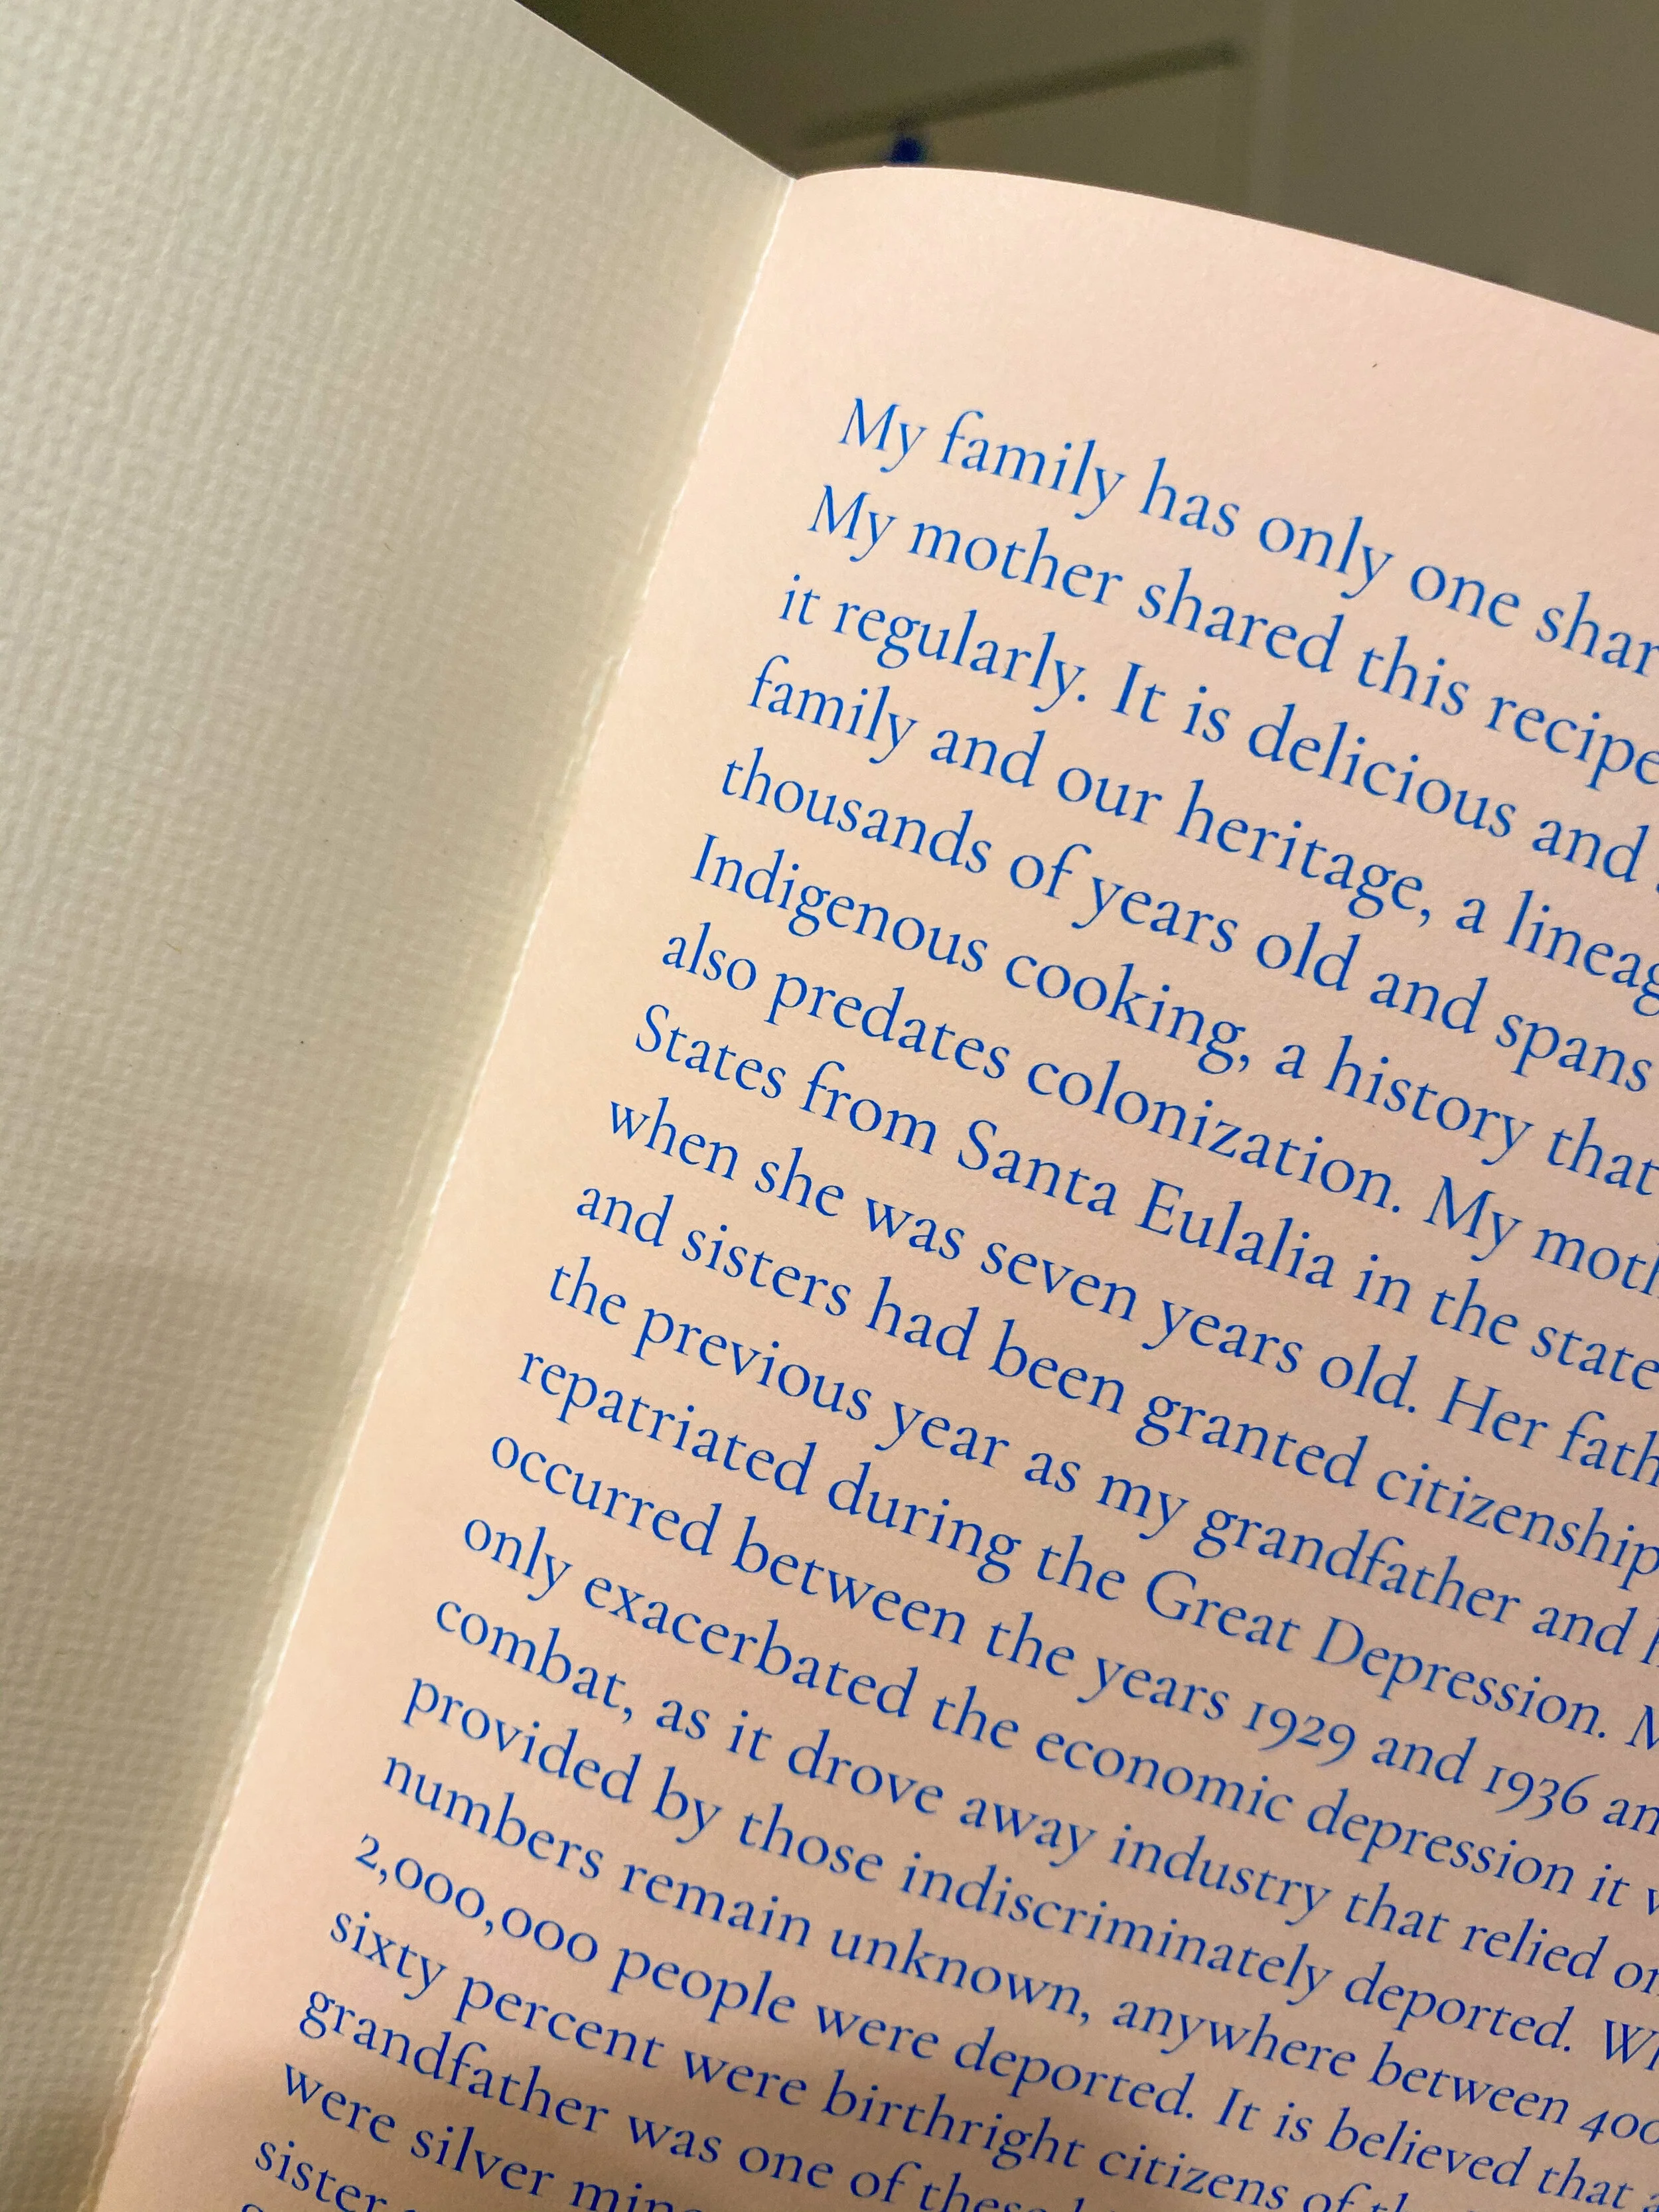 My family has only one
My mother shared this recipe
it regularly. It is delicious and
family and our heritage, a
thousands of years old and spans
Indigenous cooking, a history that
also predates colonization. My
States from Santa Eulalia in the state
when she was seven years old. Her
and sisters had been granted citizenship
the previous year as my grandfather and
repatriated during the Great Depression.
occurred between the years 1929 and 1936
only exacerbated the economic depression it
combat, as it drove away industry that relied
provided by those indiscriminately deported.
numbers remain unknown, anywhere between
2,000,000 people were deported. It is believed that
sixty percent were birthright citizens of
grandfather was one of these
were silver
sister